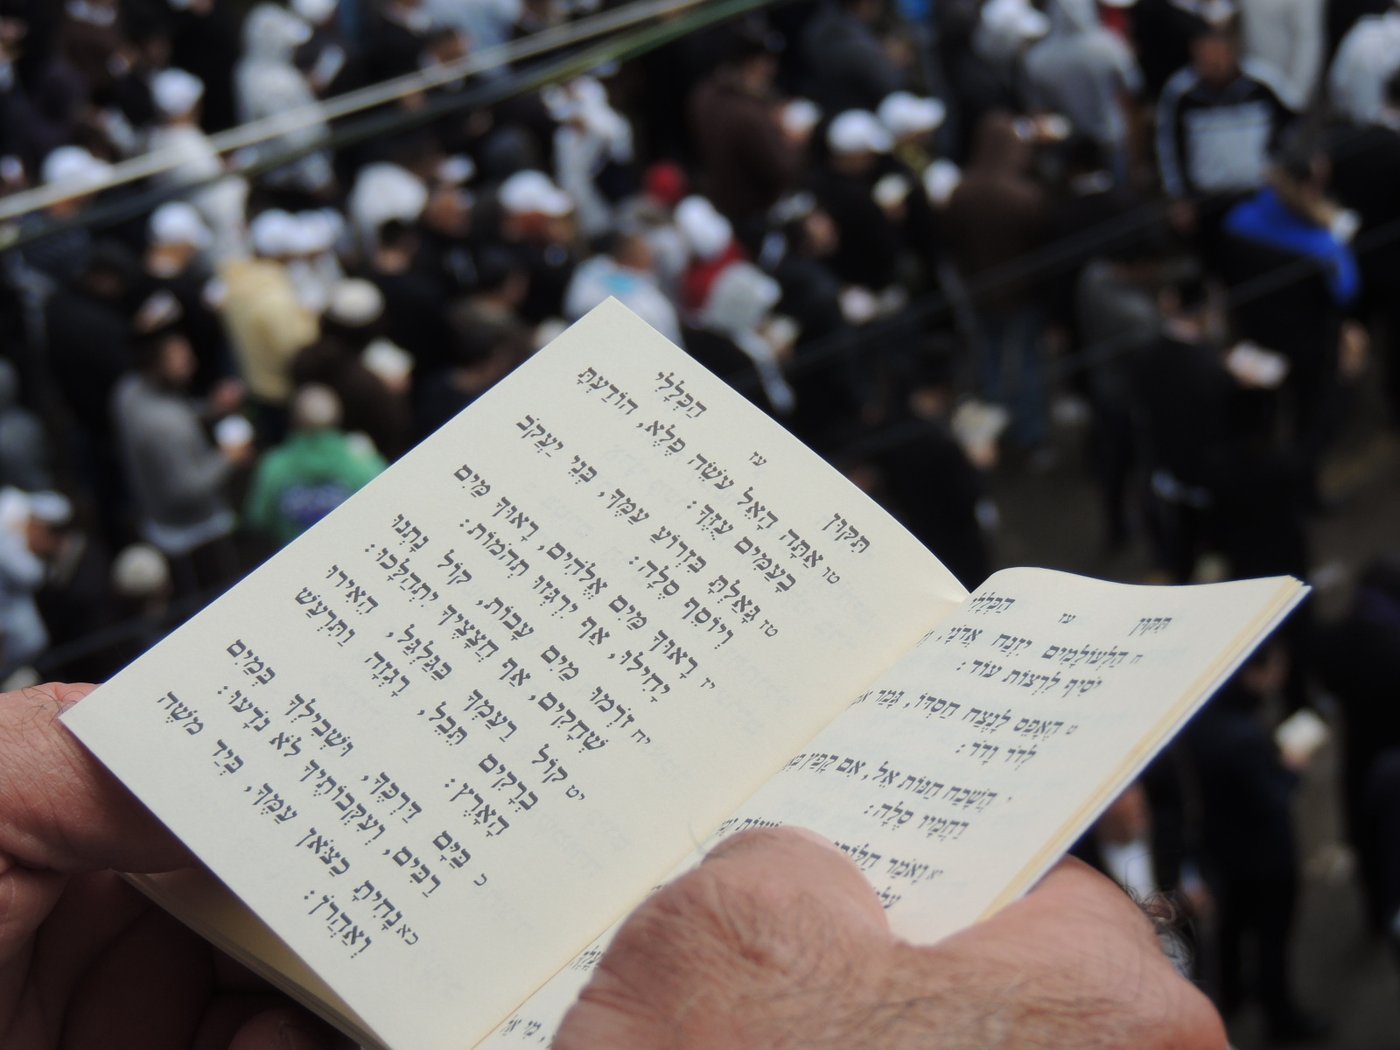 תִּקּוּן עז הַכְּלָלִי
ח הַלְעוֹלָמִים יִזְנַח אֲדֹנָי,
יֹסִיף לִרְצוֹת עוֹד:
ט הֶאָפֵס לָנֶצַח חַסְדּוֹ, גָּמַר
לְדֹר וָדֹר:
י הֲשָׁכַח חַנּוֹת אֵל, אִם קָפַץ
רַחֲמָיו סֶלָה:
יא וָאֹמַר
תִּקּוּן עז הַכְּלָלִי
טו אַתָּה הָאֵל עֹשֵׂה פֶלֶא, הוֹדַעְתָּ
בָעַמִּים עֻזֶּךָ:
טז גָּאַלְתָּ בִּזְרוֹעַ עַמֶּךָ, בְּנֵי יַעֲקֹב
וְיוֹסֵף סֶלָה:
יז רָאוּךָ מַּיִם אֱלֹהִים, רָאוּךָ מַּיִם
יָחִילוּ, אַף יִרְגְּזוּ תְהֹמוֹת:
יח זֹרְמוּ מַיִם עָבוֹת, קוֹל נָתְנוּ
שְׁחָקִים, אַף חֲצָצֶיךָ יִתְהַלָּכוּ:
יט קוֹל רַעַמְךָ בַּגַּלְגַּל, הֵאִירוּ
בְרָקִים תֵּבֵל, רָגְזָה וַתִּרְעַשׁ
הָאָרֶץ:
כ בַּיָּם דַּרְכֶּךָ, וּשְׁבִילְךָ בְּמַיִם
רַבִּים, וְעִקְּבוֹתֶיךָ לֹא נֹדָעוּ:
כא נָחִיתָ כַצֹּאן עַמֶּךָ, בְּיַד מֹשֶׁה
וְאַהֲרֹן: